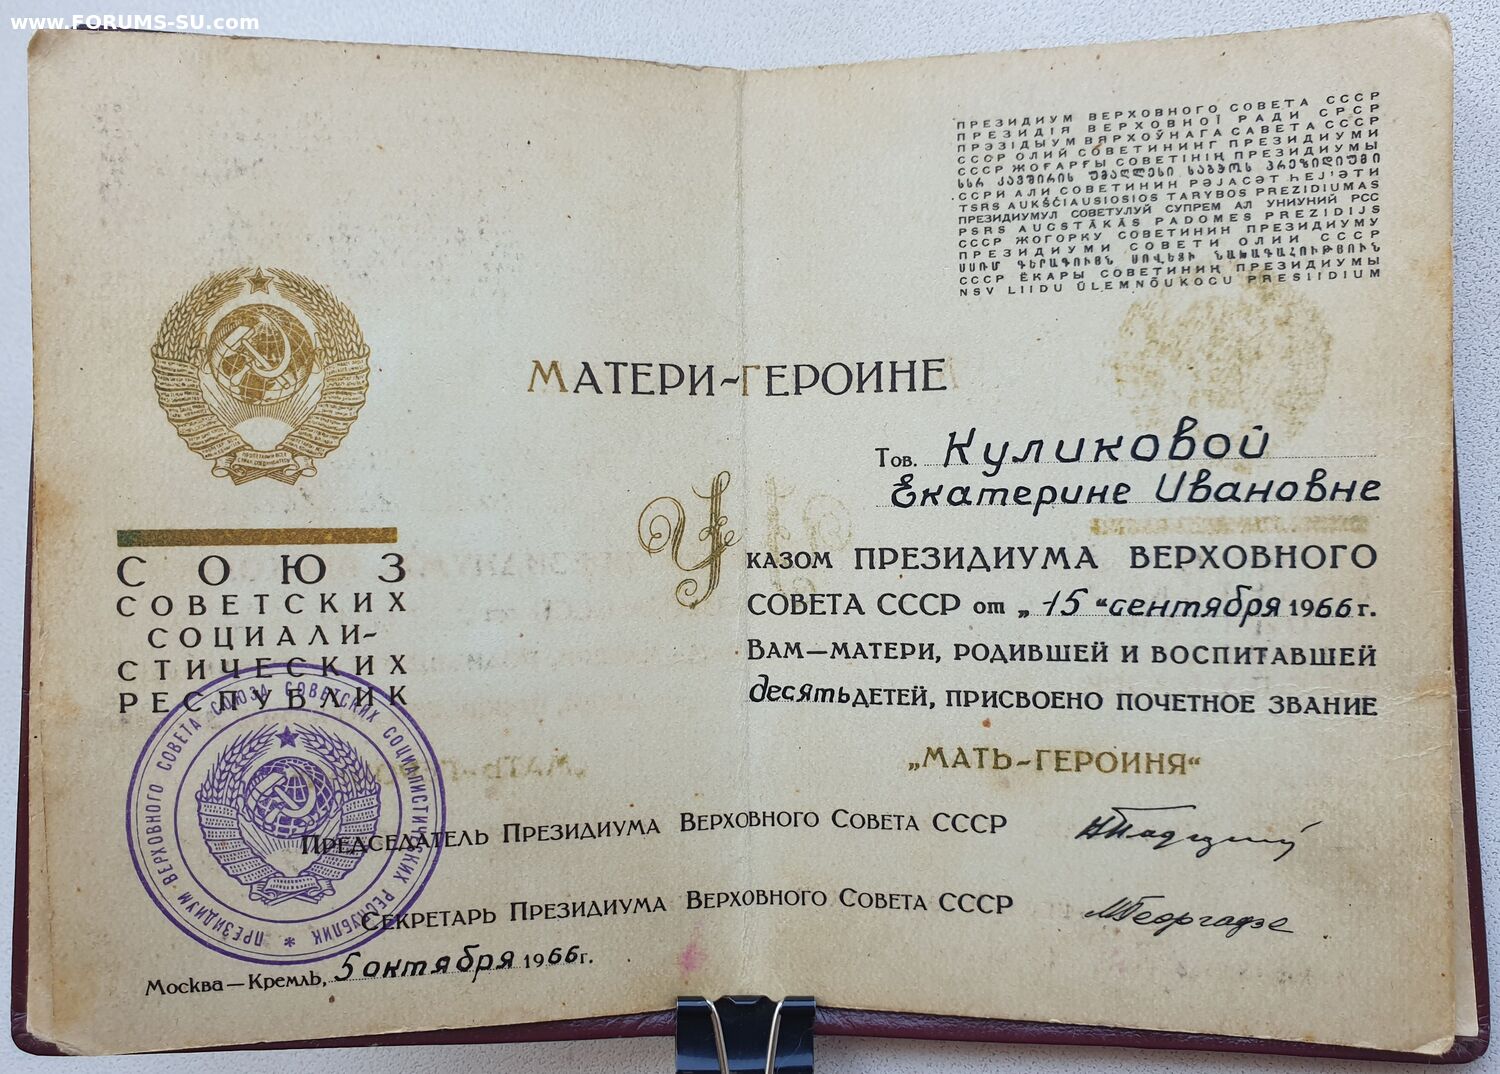 www.FORUMS-SU.com
ПРЕЗИДИУМ ВЕРХОВНОГО СОВЕТА СССР
ПРЕЗИДІЯ ВЕРХОВНОЇ РАДИ СРСР
ПРЭЗІДЫУМ ВЯРХОЎНАГА САВЕТА СССР
СССР ОЛИЙ СОВЕТИНИНГ ПРЕЗИДИУМИ
СССР ЖОҒАРҒЫ СОВЕТІНІҢ ПРЕЗИДИУМЫ
ᲡᲡᲠ ᲙᲐᲕᲨᲘᲠᲘᲡ ᲣᲛᲐᲦᲚᲔᲡᲘ ᲡᲐᲑᲭᲝᲡ ᲞᲠᲔᲖᲘᲓᲘᲣᲛᲘ
ССРИ АЛИ СОВЕТИНИН РӘЈАСӘТ ҺЕЈ'ӘТИ
TSRS AUKŠČIAUSIOSIOS TARYBOS PREZIDIUMAS
ПРЕЗИДИУМУЛ СОВЕТУЛУЙ СУПРЕМ АЛ УНИУНИЙ РСС
PSRS AUGSTĀKĀS PADOMES PREZIDIJS
СССР ЖОГОРКУ СОВЕТИНИН ПРЕЗИДИУМУ
ПРЕЗИДИУМИ СОВЕТИ ОЛИИ СССР
ՍՍՌՄ ԳԵՐԱԳՈՒՅՆ ՍՈՎԵՏԻ ՆԱԽԱԳԱՀՈՒԹՅՈՒՆ
СССР ЁКАРЫ СОВЕТИНИҢ ПРЕЗИДИУМЫ
NSV LIIDU ÜLEMNÕUKOGU PRESIIDIUM
МАТЕРИ-ГЕРОИНЕ
Тов. Куликовой
Екатерине Ивановне
СОЮЗ
СОВЕТСКИХ
СОЦИАЛИ-
СТИЧЕСКИХ
РЕСПУБЛИК
УКАЗОМ ПРЕЗИДИУМА ВЕРХОВНОГО
СОВЕТА СССР от „15“ сентября 1966 г.
ВАМ—МАТЕРИ, РОДИВШЕЙ И ВОСПИТАВШЕЙ
десять ДЕТЕЙ, ПРИСВОЕНО ПОЧЕТНОЕ ЗВАНИЕ
„МАТЬ-ГЕРОИНЯ“
ПРЕЗИДИУМ ВЕРХОВНОГО СОВЕТА СОЮЗА СОВЕТСКИХ СОЦИАЛИСТИЧЕСКИХ РЕСПУБЛИК *
ПРЕДСЕДАТЕЛЬ ПРЕЗИДИУМА ВЕРХОВНОГО СОВЕТА СССР
СЕКРЕТАРЬ ПРЕЗИДИУМА ВЕРХОВНОГО СОВЕТА СССР
М Георгадзе
Москва—Кремль, 5 октября 1966 г.